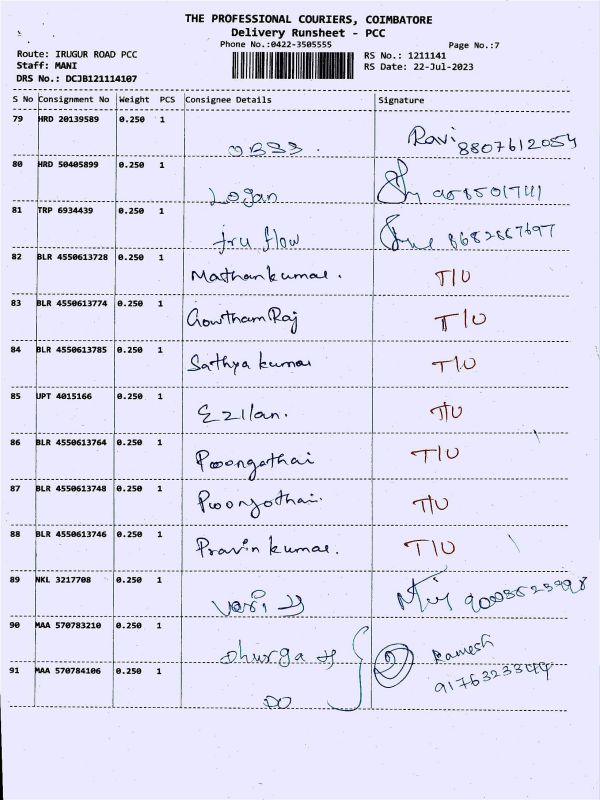 THE PROFESSIONAL COURIERS, COIMBATORE
Delivery Runsheet - PCC
Phone No.:0422-3505555 Page No.:7
Route: IRUGUR ROAD PCC RS No.: 1211141
Staff: MANI RS Date: 22-Jul-2023
DRS No.: DCJB121114107
S No Consignment No Weight PCS Consignee Details Signature
79 HRD 20139589 0.250 1 Ravi 8807612054
80 HRD 50405899 0.250 1 Logan
81 TRP 6934439 0.250 1 tru flow 8682667697
82 BLR 4550613728 0.250 1 Mathankumar. T/U
83 BLR 4550613774 0.250 1 GowthamRaj T/U
84 BLR 4550613785 0.250 1 Sathya kumar T/U
85 UPT 4015166 0.250 1 Ezilan. T/U
86 BLR 4550613764 0.250 1 Poongothai T/U
87 BLR 4550613748 0.250 1 Poongothai. T/U
88 BLR 4550613746 0.250 1 Pravin kumar. T/U
89 NKL 3217708 0.250 1
90 MAA 570783210 0.250 1 Dhurga Ramesh
91 MAA 570784106 0.250 1 DO 9176323344